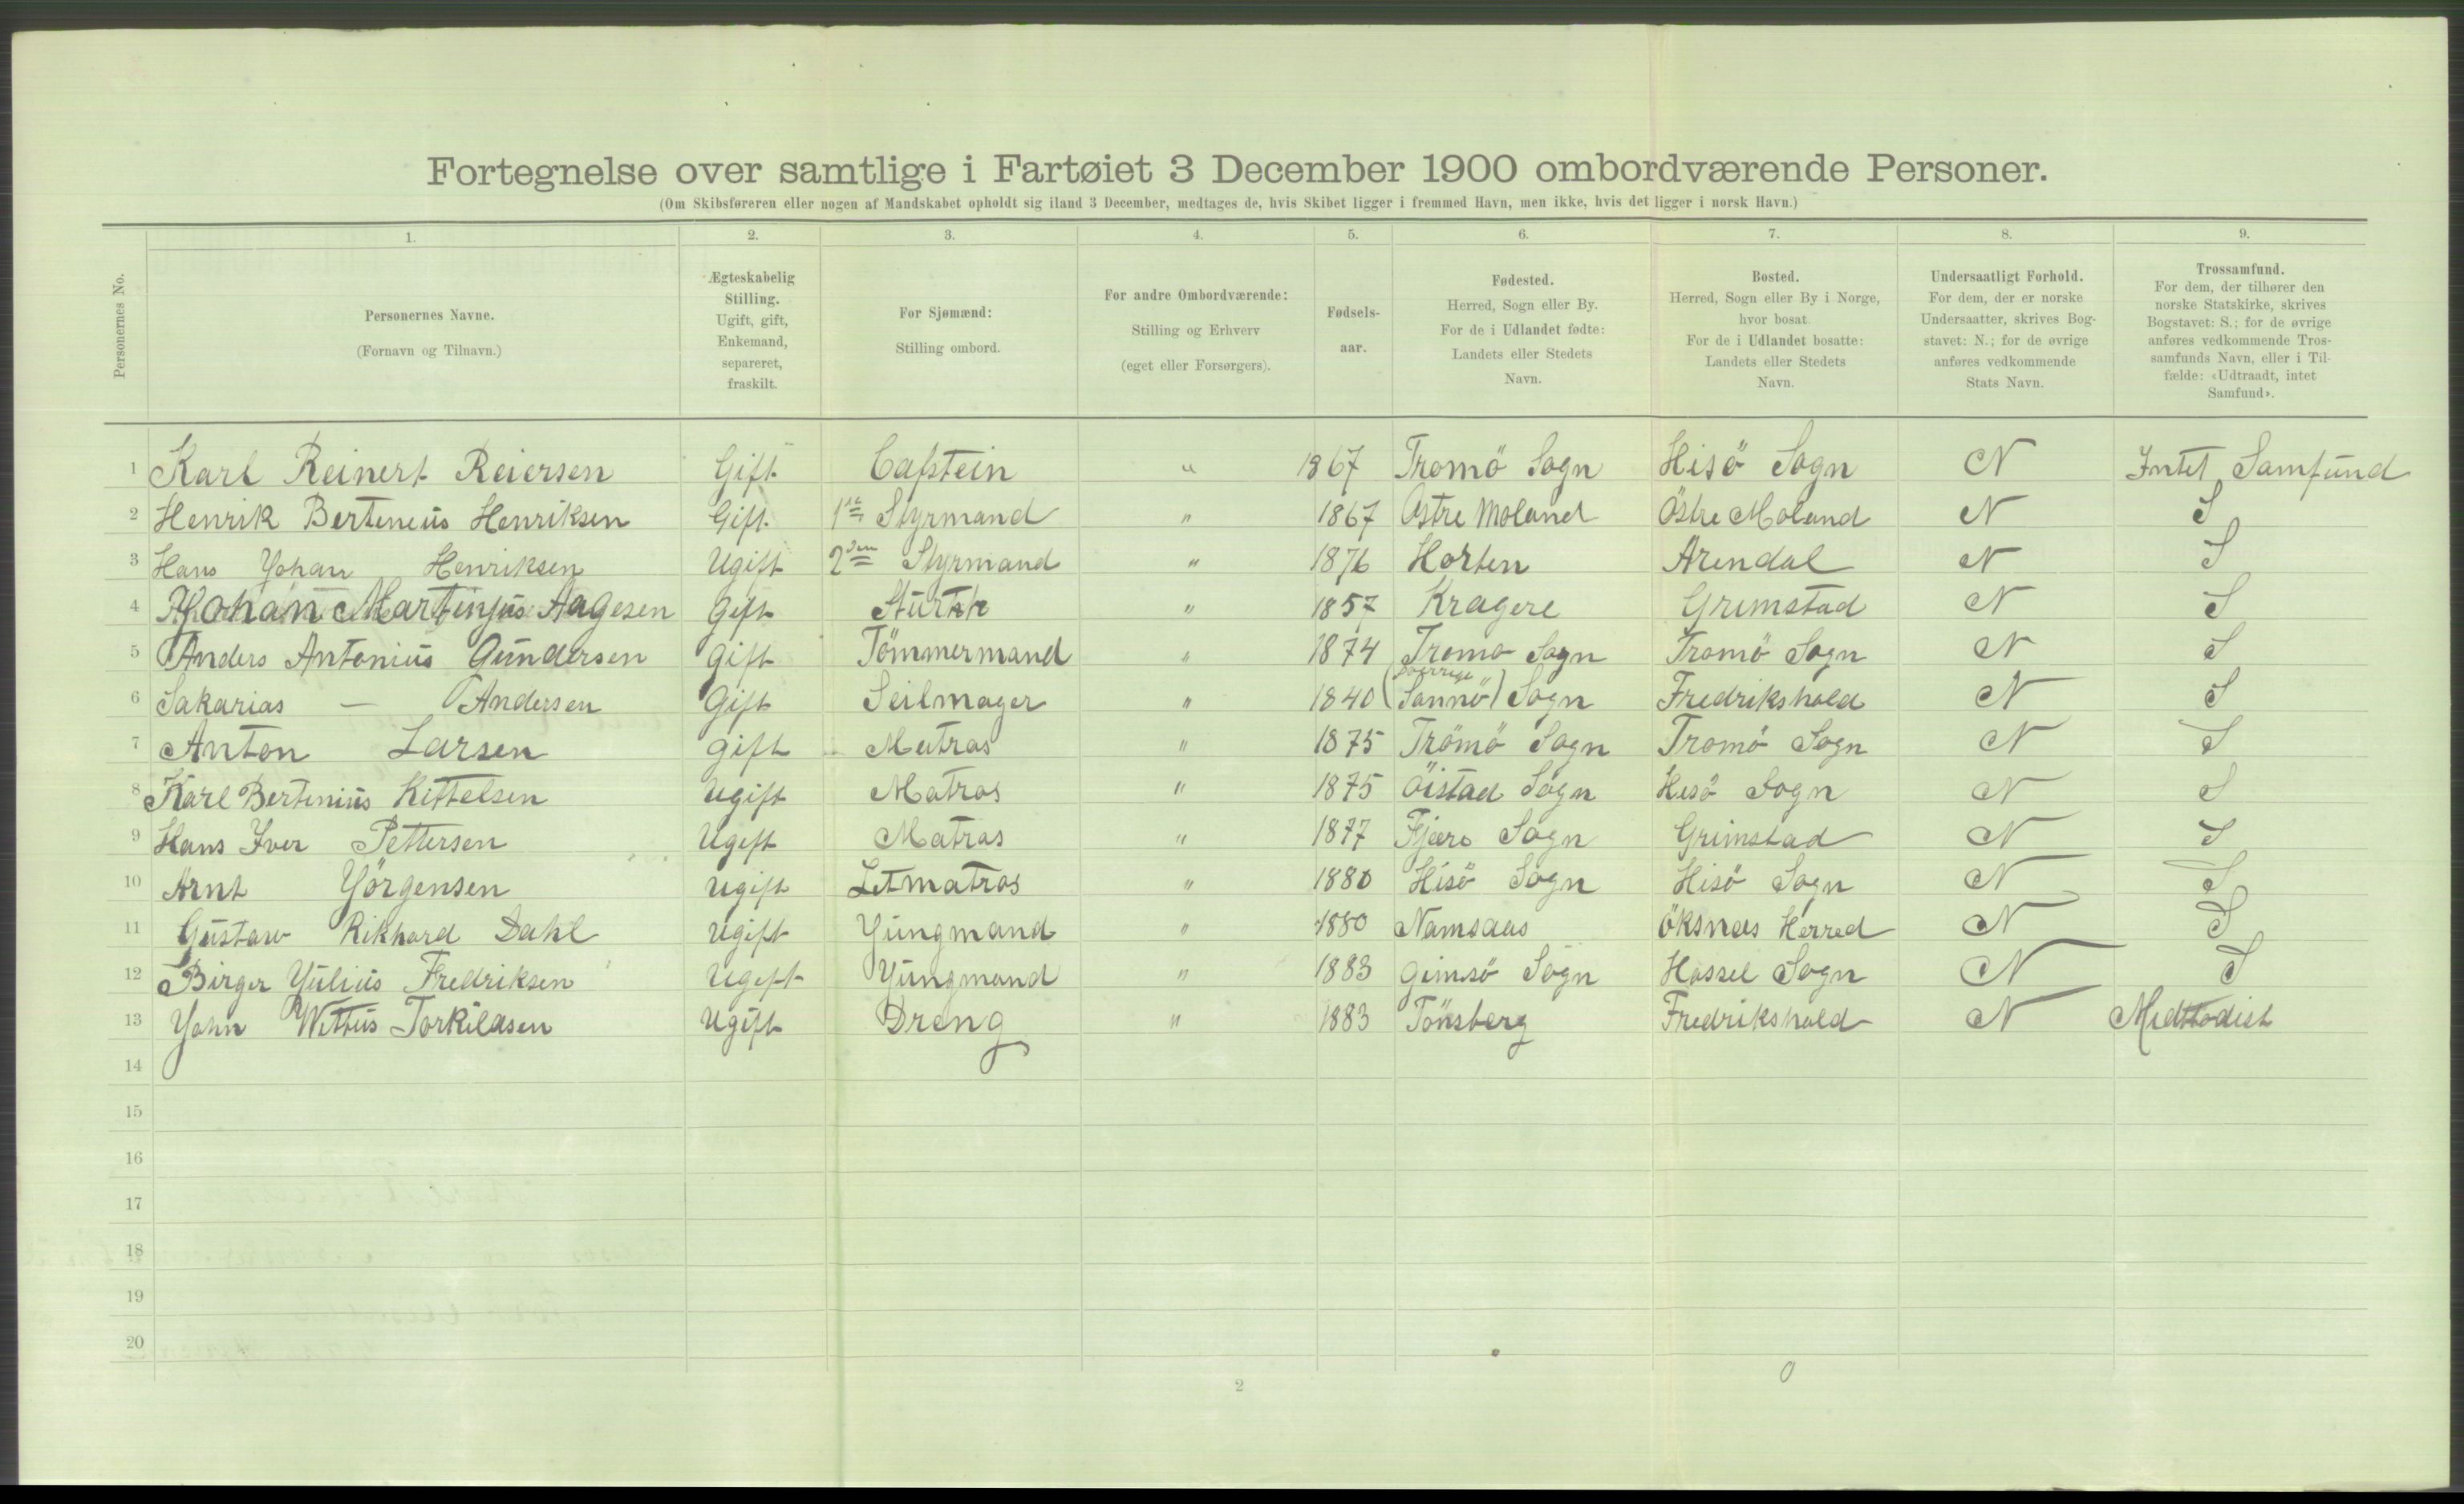 Fortegnelse over samtlige i Fartøiet 3 December 1900 ombordværende Personer.
(Om Skibsføreren eller nogen af Mandskabet opholdt sig iland 3 December, medtages de, hvis Skibet ligger i fremmed Havn, men ikke, hvis det ligger i norsk Havn.)
Personernes No.
1. 2. 3. 4. 5. 6. 7. 8. 9.
Personernes Navne.
(Fornavn og Tilnavn.)
Ægteskabelig
Stilling.
Ugift, gift,
Enkemand,
separeret,
fraskilt.
For Sjømænd:
Stilling ombord.
For andre Ombordværende:
Stilling og Erhverv
(eget eller Forsørgers).
Fødsels-
aar.
Fødested.
Herred, Sogn eller By.
For de i Udlandet fødte:
Landets eller Stedets
Navn.
Bosted.
Herred, Sogn eller By i Norge,
hvor bosat.
For de i Udlandet bosatte:
Landets eller Stedets
Navn.
Undersaatligt Forhold.
For dem, der er norske
Undersaatter, skrives Bog-
stavet: N.; for de øvrige
anføres vedkommende
Stats Navn.
Trossamfund.
For dem, der tilhører den
norske Statskirke, skrives
Bogstavet: S.; for de øvrige
anføres vedkommende Tros-
samfunds Navn, eller i Til-
fælde: «Udtraadt, intet
Samfund».
1 Karl Reinert Reiersen Gift Cafstein " 1867 Tromö Sogn Hisö Sogn N Intet Samfund
2 Henrik Berteneüs Henriksen Gift 1ste Styrmand " 1867 Østre Moland Östre Moland N S
3 Hans Yohan Henriksen Ugift 2den Styrmand " 1876 Horten Arendal N S
4 Yohan Martinjus Aagesen Gift " 1857 Kragere Grimstad N S
5 Anders Antonius Gundersen Gift Tömmermand " 1874 Tromo Sogn Tromö Sogn N S
6 Sakarias — Andersen Gift Seilmager " 1840 (Sannö) Sogn Fredrikshald N S
7 Anton Larsen gift Matros " 1875 Trömö Sogn Tromö Sogn N S
8 Karl Bertinius Kittelsen Ugift Matros " 1875 Öistad Sogn Hisö Sogn N S
9 Hans Iver Pettersen Ugift Matros " 1877 Fjære Sogn Grimstad N S
10 Arnt Yörgensen Ugift Letmatros " 1880 Hisö Sogn Hisö Sogn N S
11 Gustaw Rikhard Dahl Ugift Yüngmand " 1880 Namsaas Öksnæs Herred N S
12 Birger Yülius Fredriksen Ugift Yüngmand " 1883 Gimsö Sogn Hassel Sogn N S
13 Yohn Wittus Torkildsen Ugift Dreng " 1883 Tönsberg Fredrikshald N Midttodist
14
15
16
17
18
19
20
2